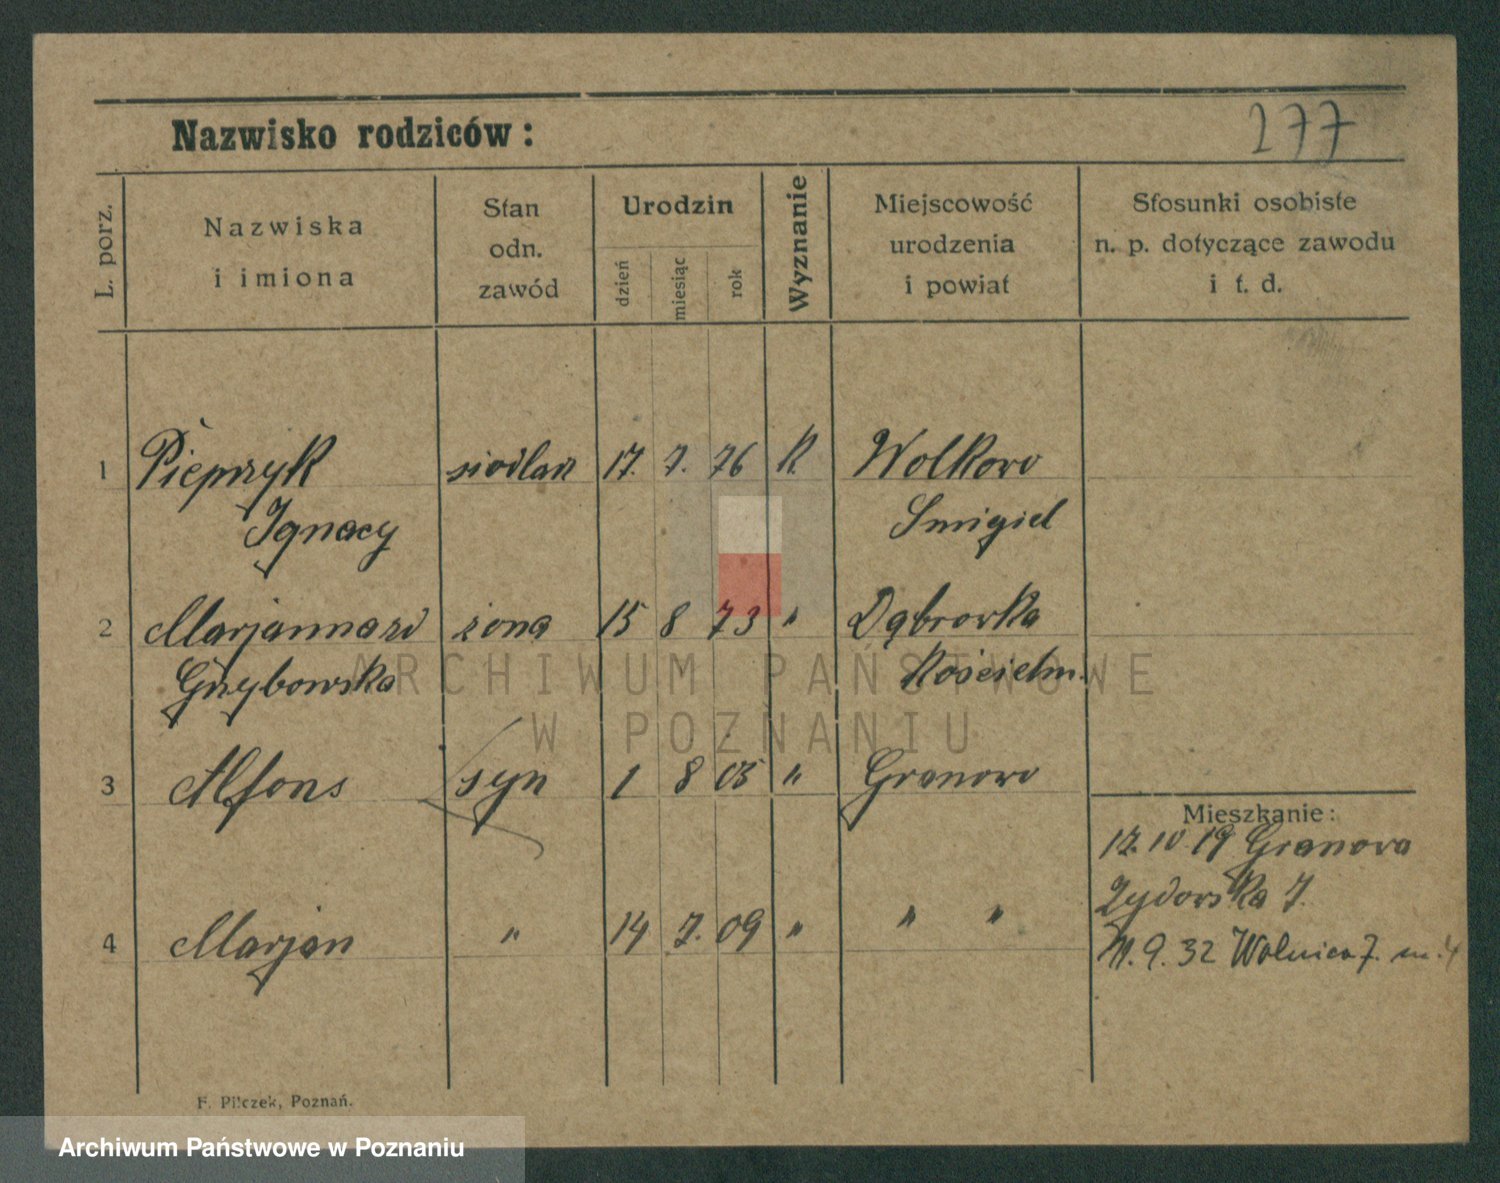 277
Nazwisko rodziców:
L. porz.
Nazwiska
i imiona
Stan
odn.
zawód
Urodzin
dzień
miesiąc
rok
Wyznanie
Miejscowość
urodzenia
i powiat
Stosunki osobiste
n. p. dotyczące zawodu
i t. d.
1 Pieprzyk siodlarz 17. 7. 76 K. Wolkowo
Ignacy Smigiel
2 Marjanna zd żona 15 8 73 " Dąbrowka
Grzybowska Kościelna
3 Alfons syn 1 8 05 " Granowo
Mieszkanie:
17. 10 19 Granowa
4 Marjan " 14 7. 09 " " "
7.
9. 32 Wolnica 7. m. 4
ARCHIWUM PAŃSTWOWE
W POZNANIU
F. Pilczek, Poznań.
Archiwum Państwowe w Poznaniu